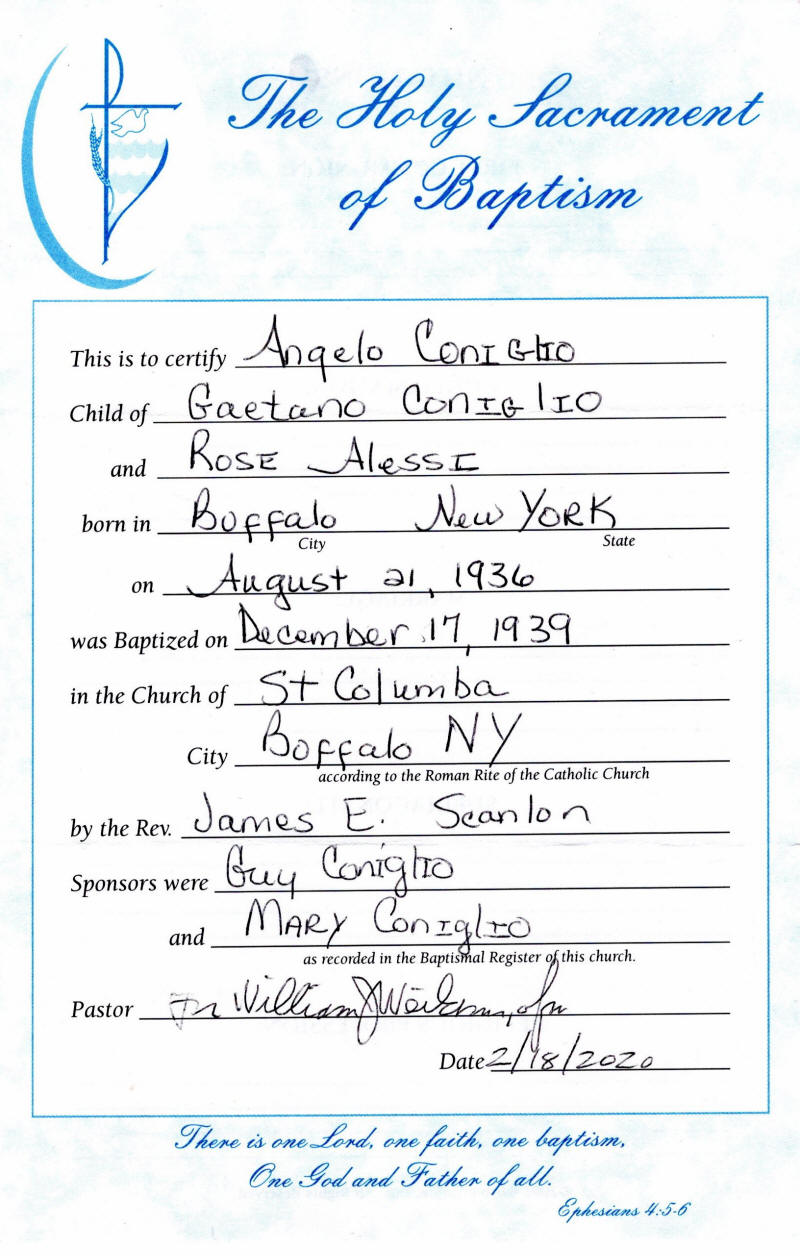 The Holy Sacrament
of Baptism
This is to certify Angelo Coniglio
Child of Gaetano Coniglio
and Rose Alessi
born in Boffalo New York
City State
on August 21, 1936
was Baptized on December 17, 1939
in the Church of St Columba
City Boffalo NY
according to the Roman Rite of the Catholic Church
by the Rev. James E. Scanlon
Sponsors were Guy Coniglio
and Mary Coniglio
as recorded in the Baptismal Register of this church.
Pastor Fr William J
Date 2/18/2020
There is one Lord, one faith, one baptism,
One God and Father of all.
Ephesians 4:5-6